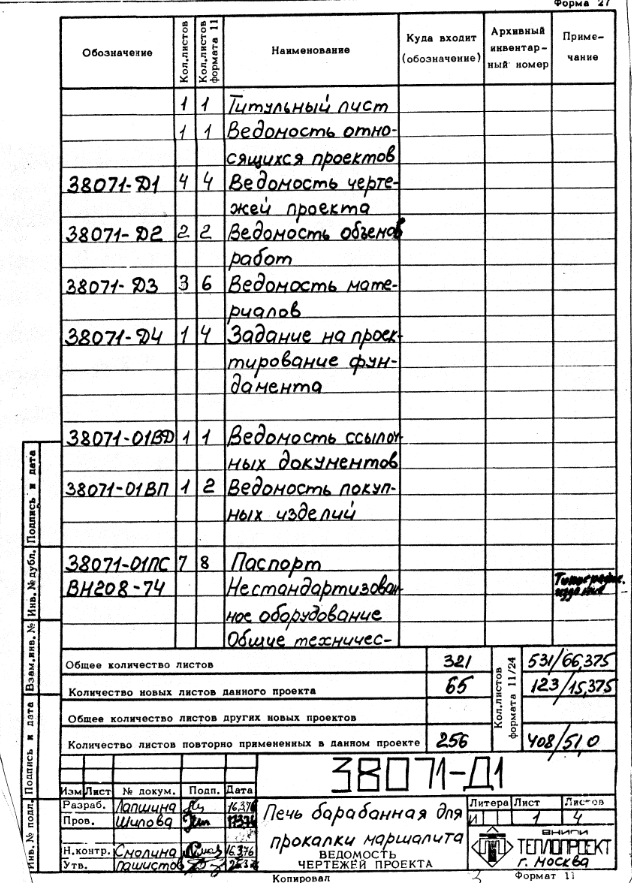 Форма 27
Обозначение Кол.листов Кол.листов формата 11 Наименование Куда входит (обозначение) Архивный инвентар-ный номер Приме-чание
1 1 Титульный лист
1 1 Ведомость отно-
сящихся проектов
38071-Д1 4 4 Ведомость черте-
жей проекта
38071-Д2 2 2 Ведомость объемов
работ
38071-Д3 3 6 Ведомость мате-
риалов
38071-Д4 1 4 Задание на проек-
тирование фун-
дамента
38071-01ВД 1 1 Ведомость ссылоч-
ных документов
38071-01ВП 1 2 Ведомость покуп-
ных изделий
38071-01ПС 7 8 Паспорт
ВН208-74 Нестандартизован- Типографс. издание
ное оборудование
Общие техничес-
Общее количество листов 321 Кол.листов формата 11/24 531/66,375
Количество новых листов данного проекта 65 123/15,375
Общее количество листов других новых проектов
Количество листов повторно примененных в данном проекте 256 408/51,0
38071-Д1
Изм Лист № докум. Подп. Дата
Разраб. Лапшина 16.3.76
Пров. Шилова
Н.контр. Смолина 16.3.76
Утв.
Печь барабанная для
прокалки маршалита
ВЕДОМОСТЬ
ЧЕРТЕЖЕЙ ПРОЕКТА
Литера Лист Листов
И 1 4
ВНИПИ
ТЕПЛОПРОЕКТ
г. Москва
Копировал Формат 11
Инв. № подл. Подпись и дата Взам.инв. № Инв. № дубл. Подпись и дата